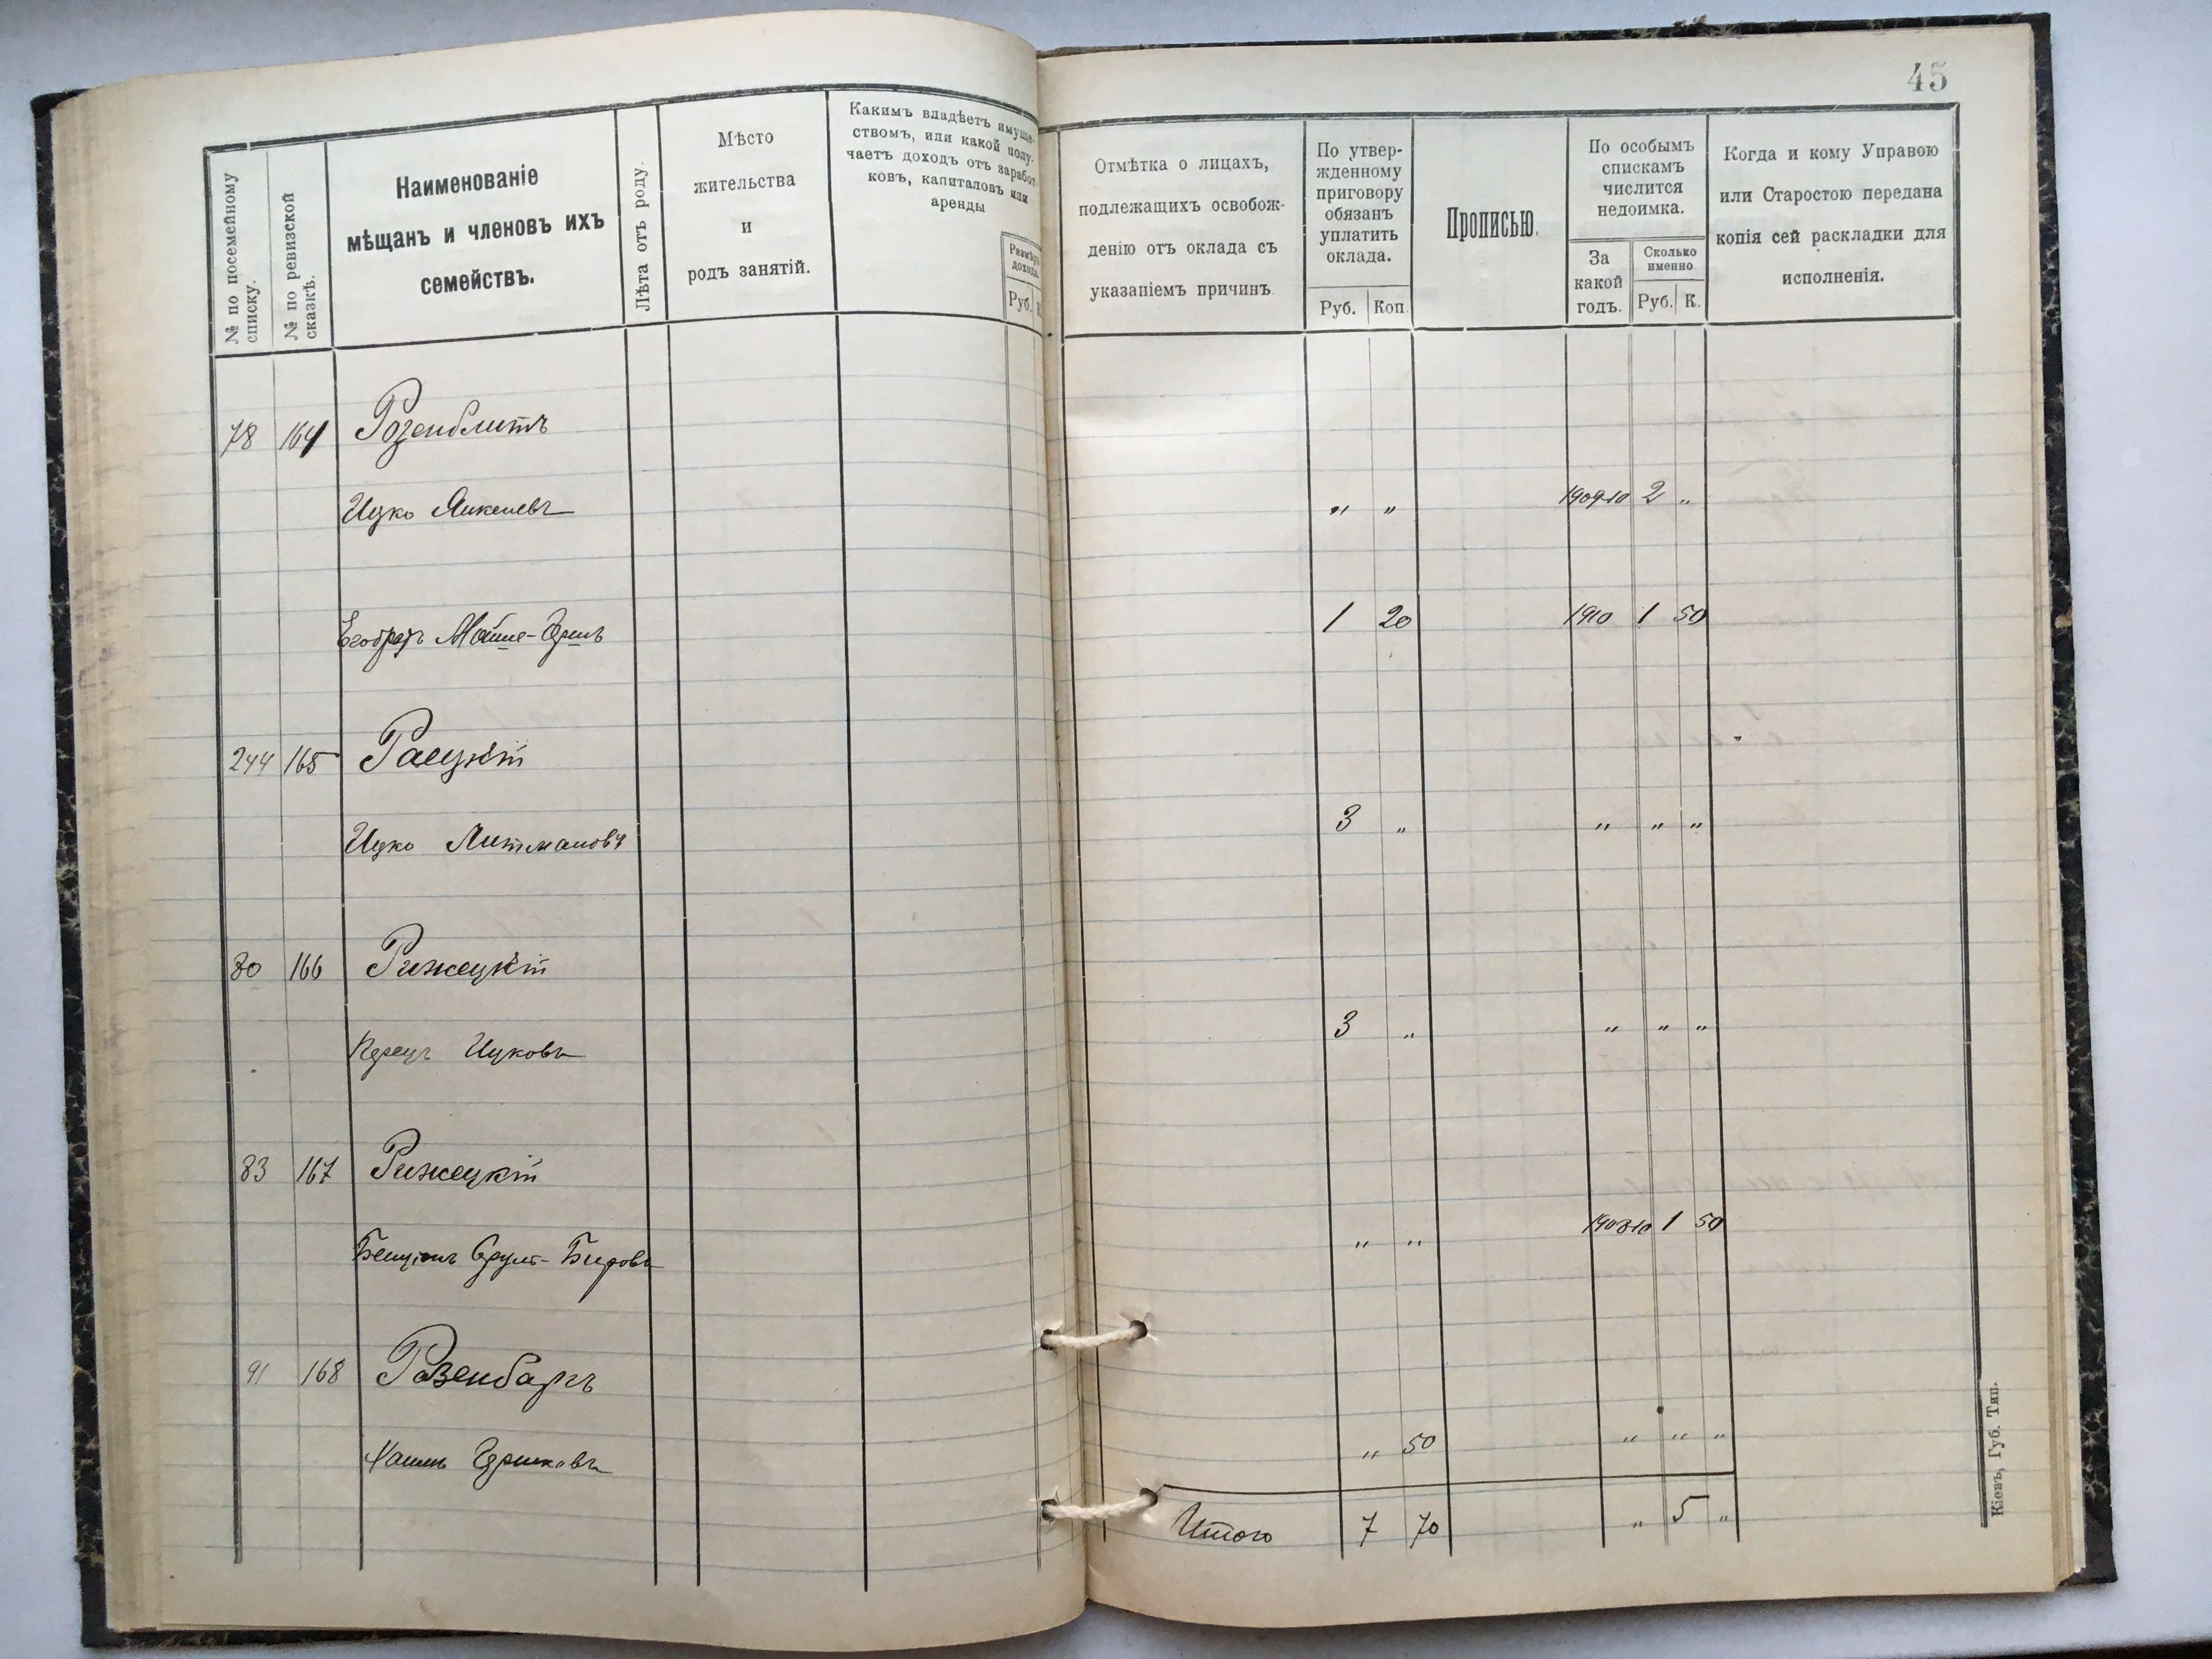 45
№ по посемейному списку.
№ по ревизской сказкѣ.
Наименованіе
мѣщанъ и членовъ ихъ
семействъ.
Лѣта отъ роду.
Мѣсто
жительства
и
родъ занятій.
Какимъ владѣетъ имуще-
ствомъ, или какой полу-
чаетъ доходъ отъ заработ-
ковъ, капиталовъ или
аренды
Размѣръ
дохода.
Руб. К.
Отмѣтка о лицахъ,
подлежащихъ освобож-
денію отъ оклада съ
указаніемъ причинъ
По утвер-
жденному
приговору
обязанъ
уплатить
оклада.
Руб. Коп.
Прописью.
По особымъ
спискамъ
числится
недоимка.
За
какой
годъ.
Сколько
именно
Руб. К.
Когда и кому Управою
или Старостою передана
копія сей раскладки для
исполненія.
78 164 Розенблитъ
Ицко Янкелевъ „ „ 1909-10 2 „
Мойше- 1 20 1910 1 50
244 165 Расцкій
Ицко Литмановъ 3 „ „ „ „
80 166 Рижецкій
Перецъ Ицковъ 3 „ „ „ „
83 167 Рижецкій
Бенціонъ Сруль-Беровъ „ „ 1908-10 1 50
91 168 Розенбаръ
Гершковъ „ 50 „ „ „
Итого 7 70 „ 5 „
Кіевъ, Губ. Тип.